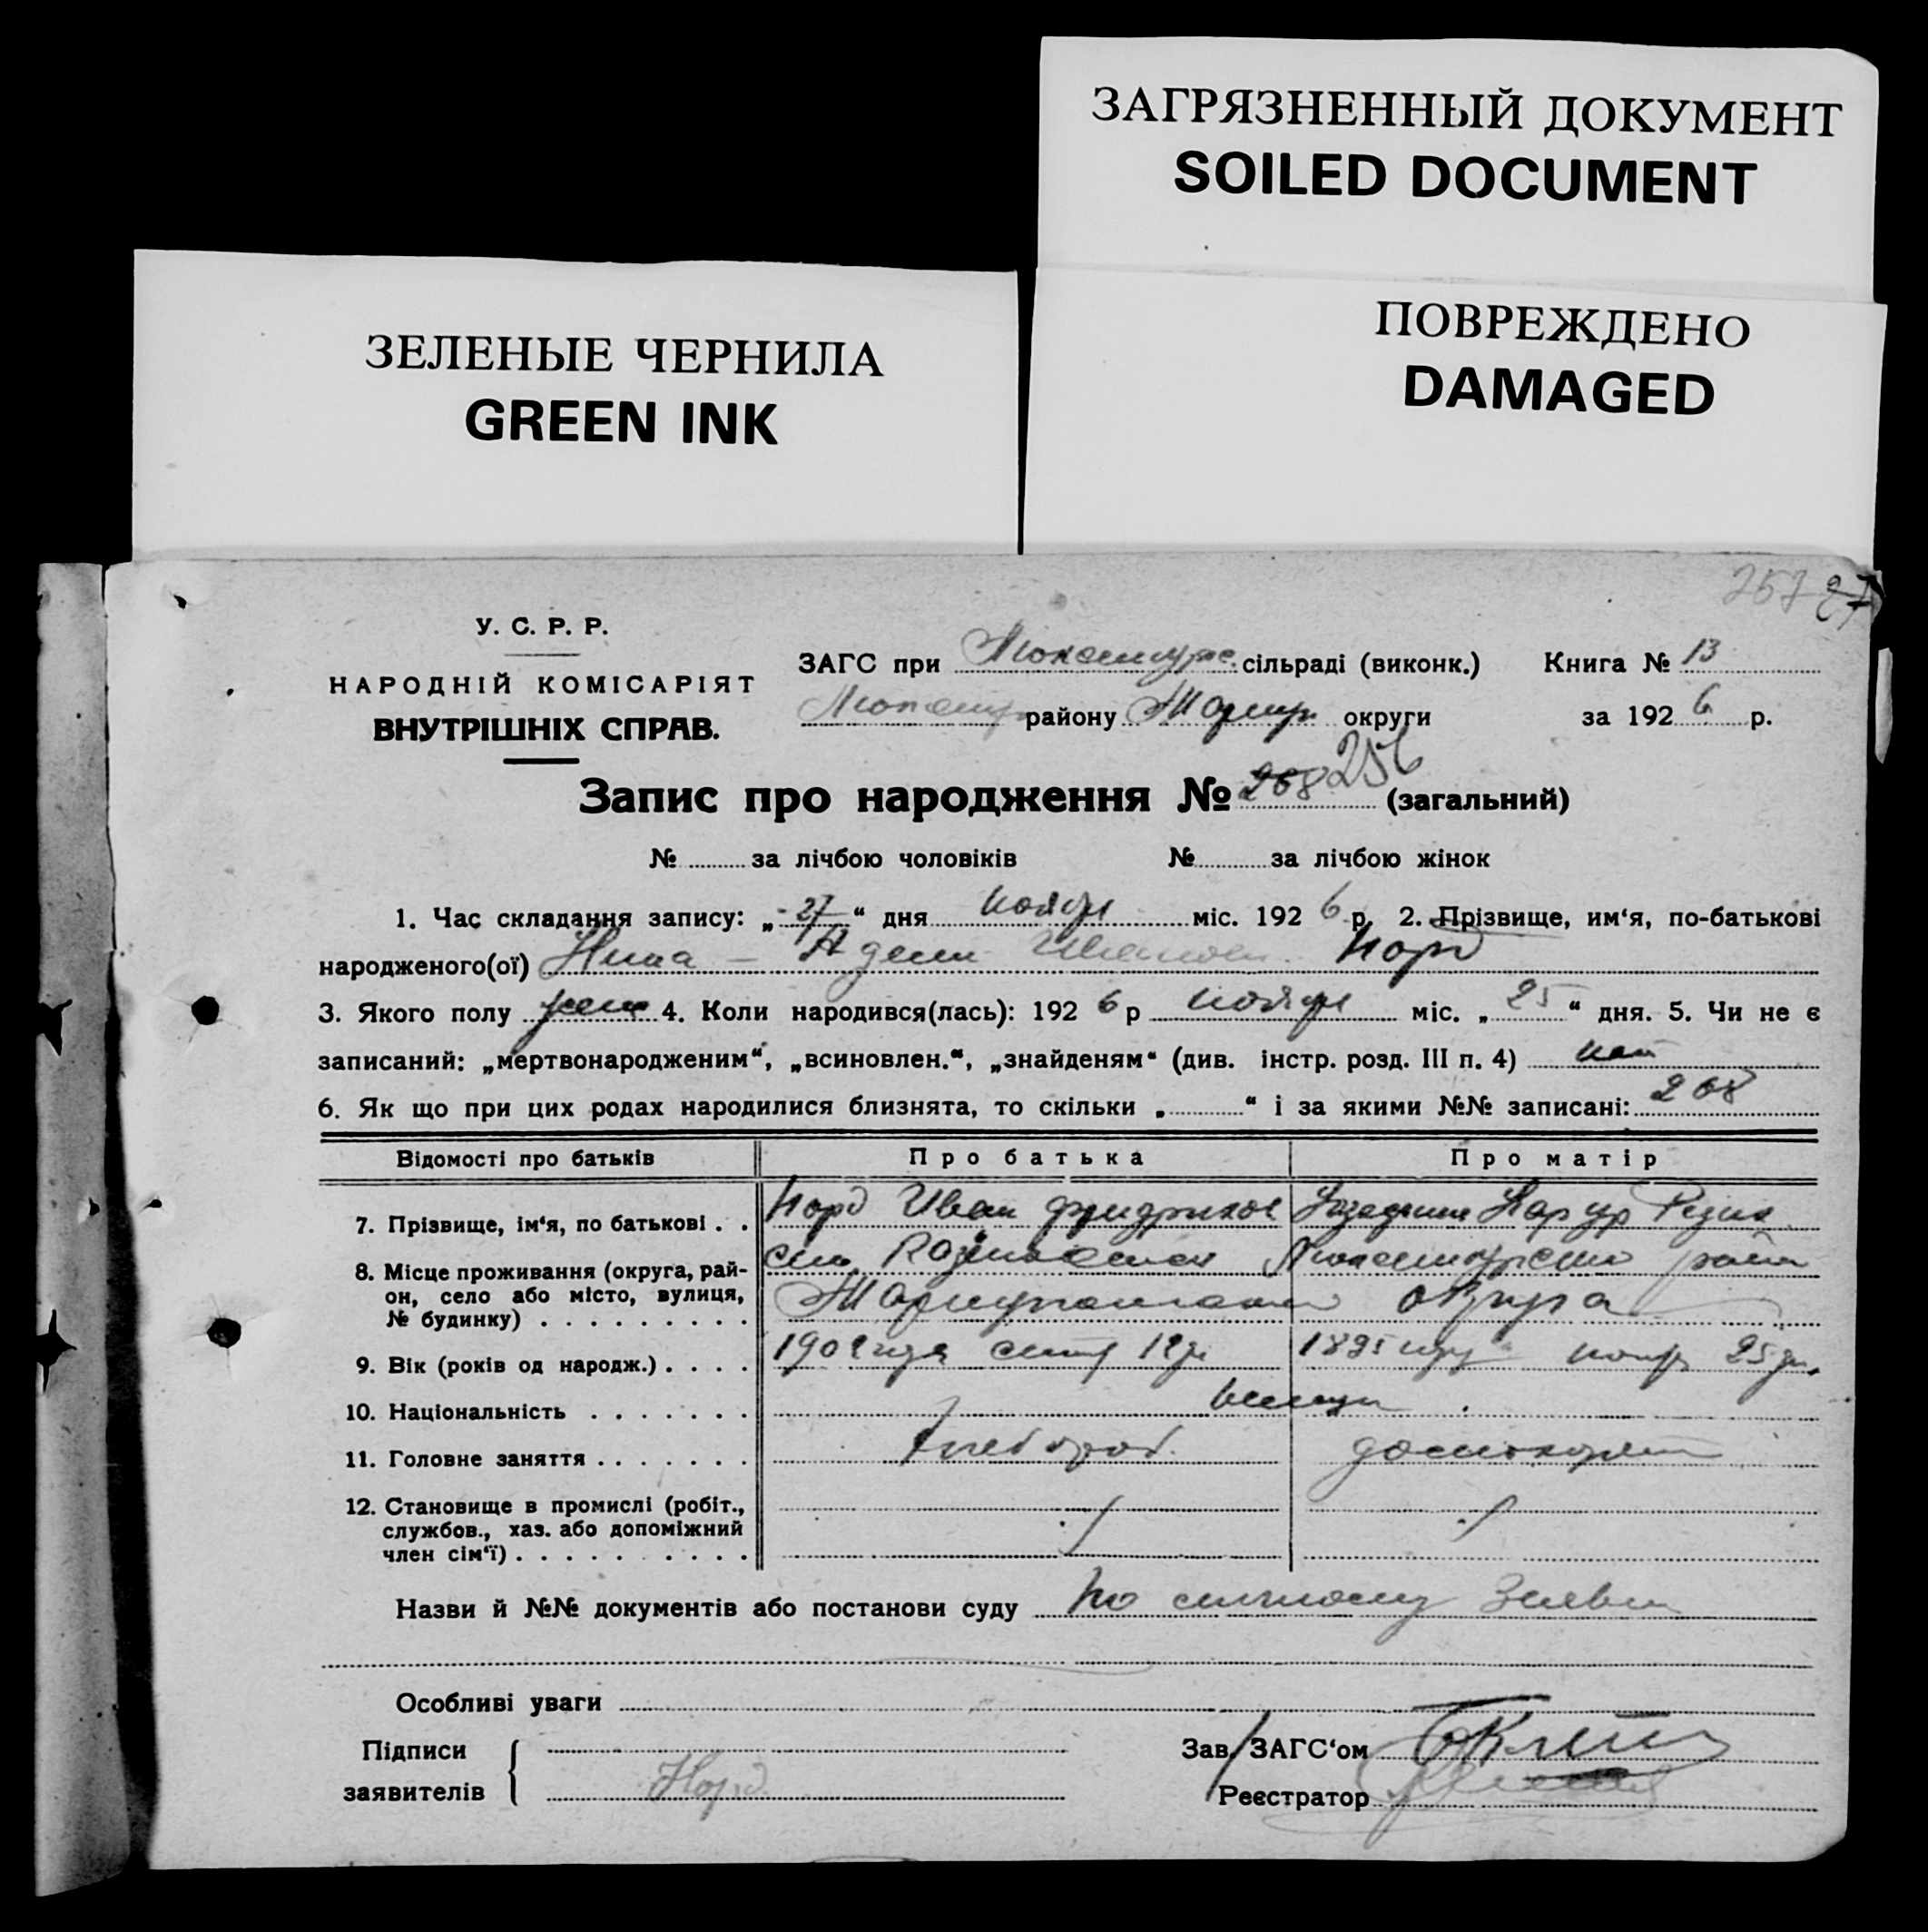 ЗАГРЯЗНЕННЫЙ ДОКУМЕНТ
SOILED DOCUMENT
ЗЕЛЕНЫЕ ЧЕРНИЛА
GREEN INK
ПОВРЕЖДЕНО
DAMAGED
257 27
У. С. Р. Р.
НАРОДНІЙ КОМІСАРІЯТ
ВНУТРІШНІХ СПРАВ.
ЗАГС при сільраді (виконк.) Книга № 13
району Мариуп. округи за 1926 р.
Запис про народження № 268 256 (загальний)
№ за лічбою чоловіків № за лічбою жінок
1. Час складання запису: „27“ дня ноября міс. 1926 р. 2. Прізвище, им‘я, по-батькові
народженого(ої) Нина – Адели Иванов. Норд
3. Якого полу жен 4. Коли народився(лась): 1926 р ноября міс. „25“ дня. 5. Чи не є
записаний: „мертвонародженим“, „всиновлен.“, „знайденям“ (див. інстр. розд. III п. 4) нет
6. Як що при цих родах народилися близнята, то скільки „ “ і за якими №№ записані: 268
Відомості про батьків Про батька Про матір
7. Прізвище, ім‘я, по батькові . . Норд Иван Фридрихов
8. Місце проживання (округа, рай-
он, село або місто, вулиця,
№ будинку) . . . . . . . . . Мариупольского округа
9. Вік (років од народж.) . . . . 1902 года сент 12 д 1895 году ноябр 25 дн.
10. Національність . . . . . . . немцы
11. Головне заняття . . . . . . . хлебороб. домохозяй
12. Становище в промислі (робіт.,
службов., хаз. або допоміжний
член сім‘ї) . . . . . . . . . .
Назви й №№ документів або постанови суду по личному заявл
Особливі уваги
Підписи
заявителів Норд
Зав. ЗАГС‘ом
Реєстратор